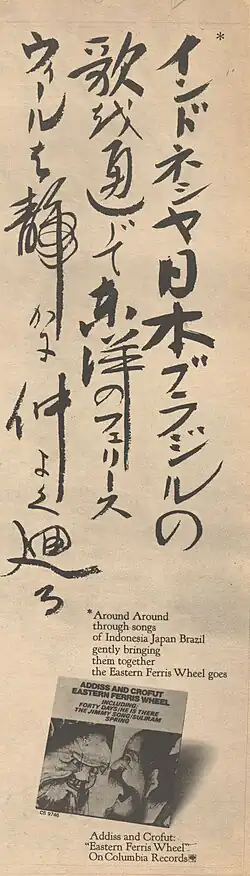 *
インドネシヤ日本ブラジルの
歌を通じて東洋のフェリース
ウィールは静かに仲よく廻る
*Around Around
through songs
of Indonesia Japan Brazil
gently bringing
them together
the Eastern Ferris Wheel goes
ADDISS AND CROFUT
EASTERN FERRIS WHEEL
INCLUDING:
FORTY DAYS/HE IS THERE
THE JIMMY SONG/SULIRAM
SPRING
CS 9746
Addiss and Crofut:
“Eastern Ferris Wheel”
On Columbia Records